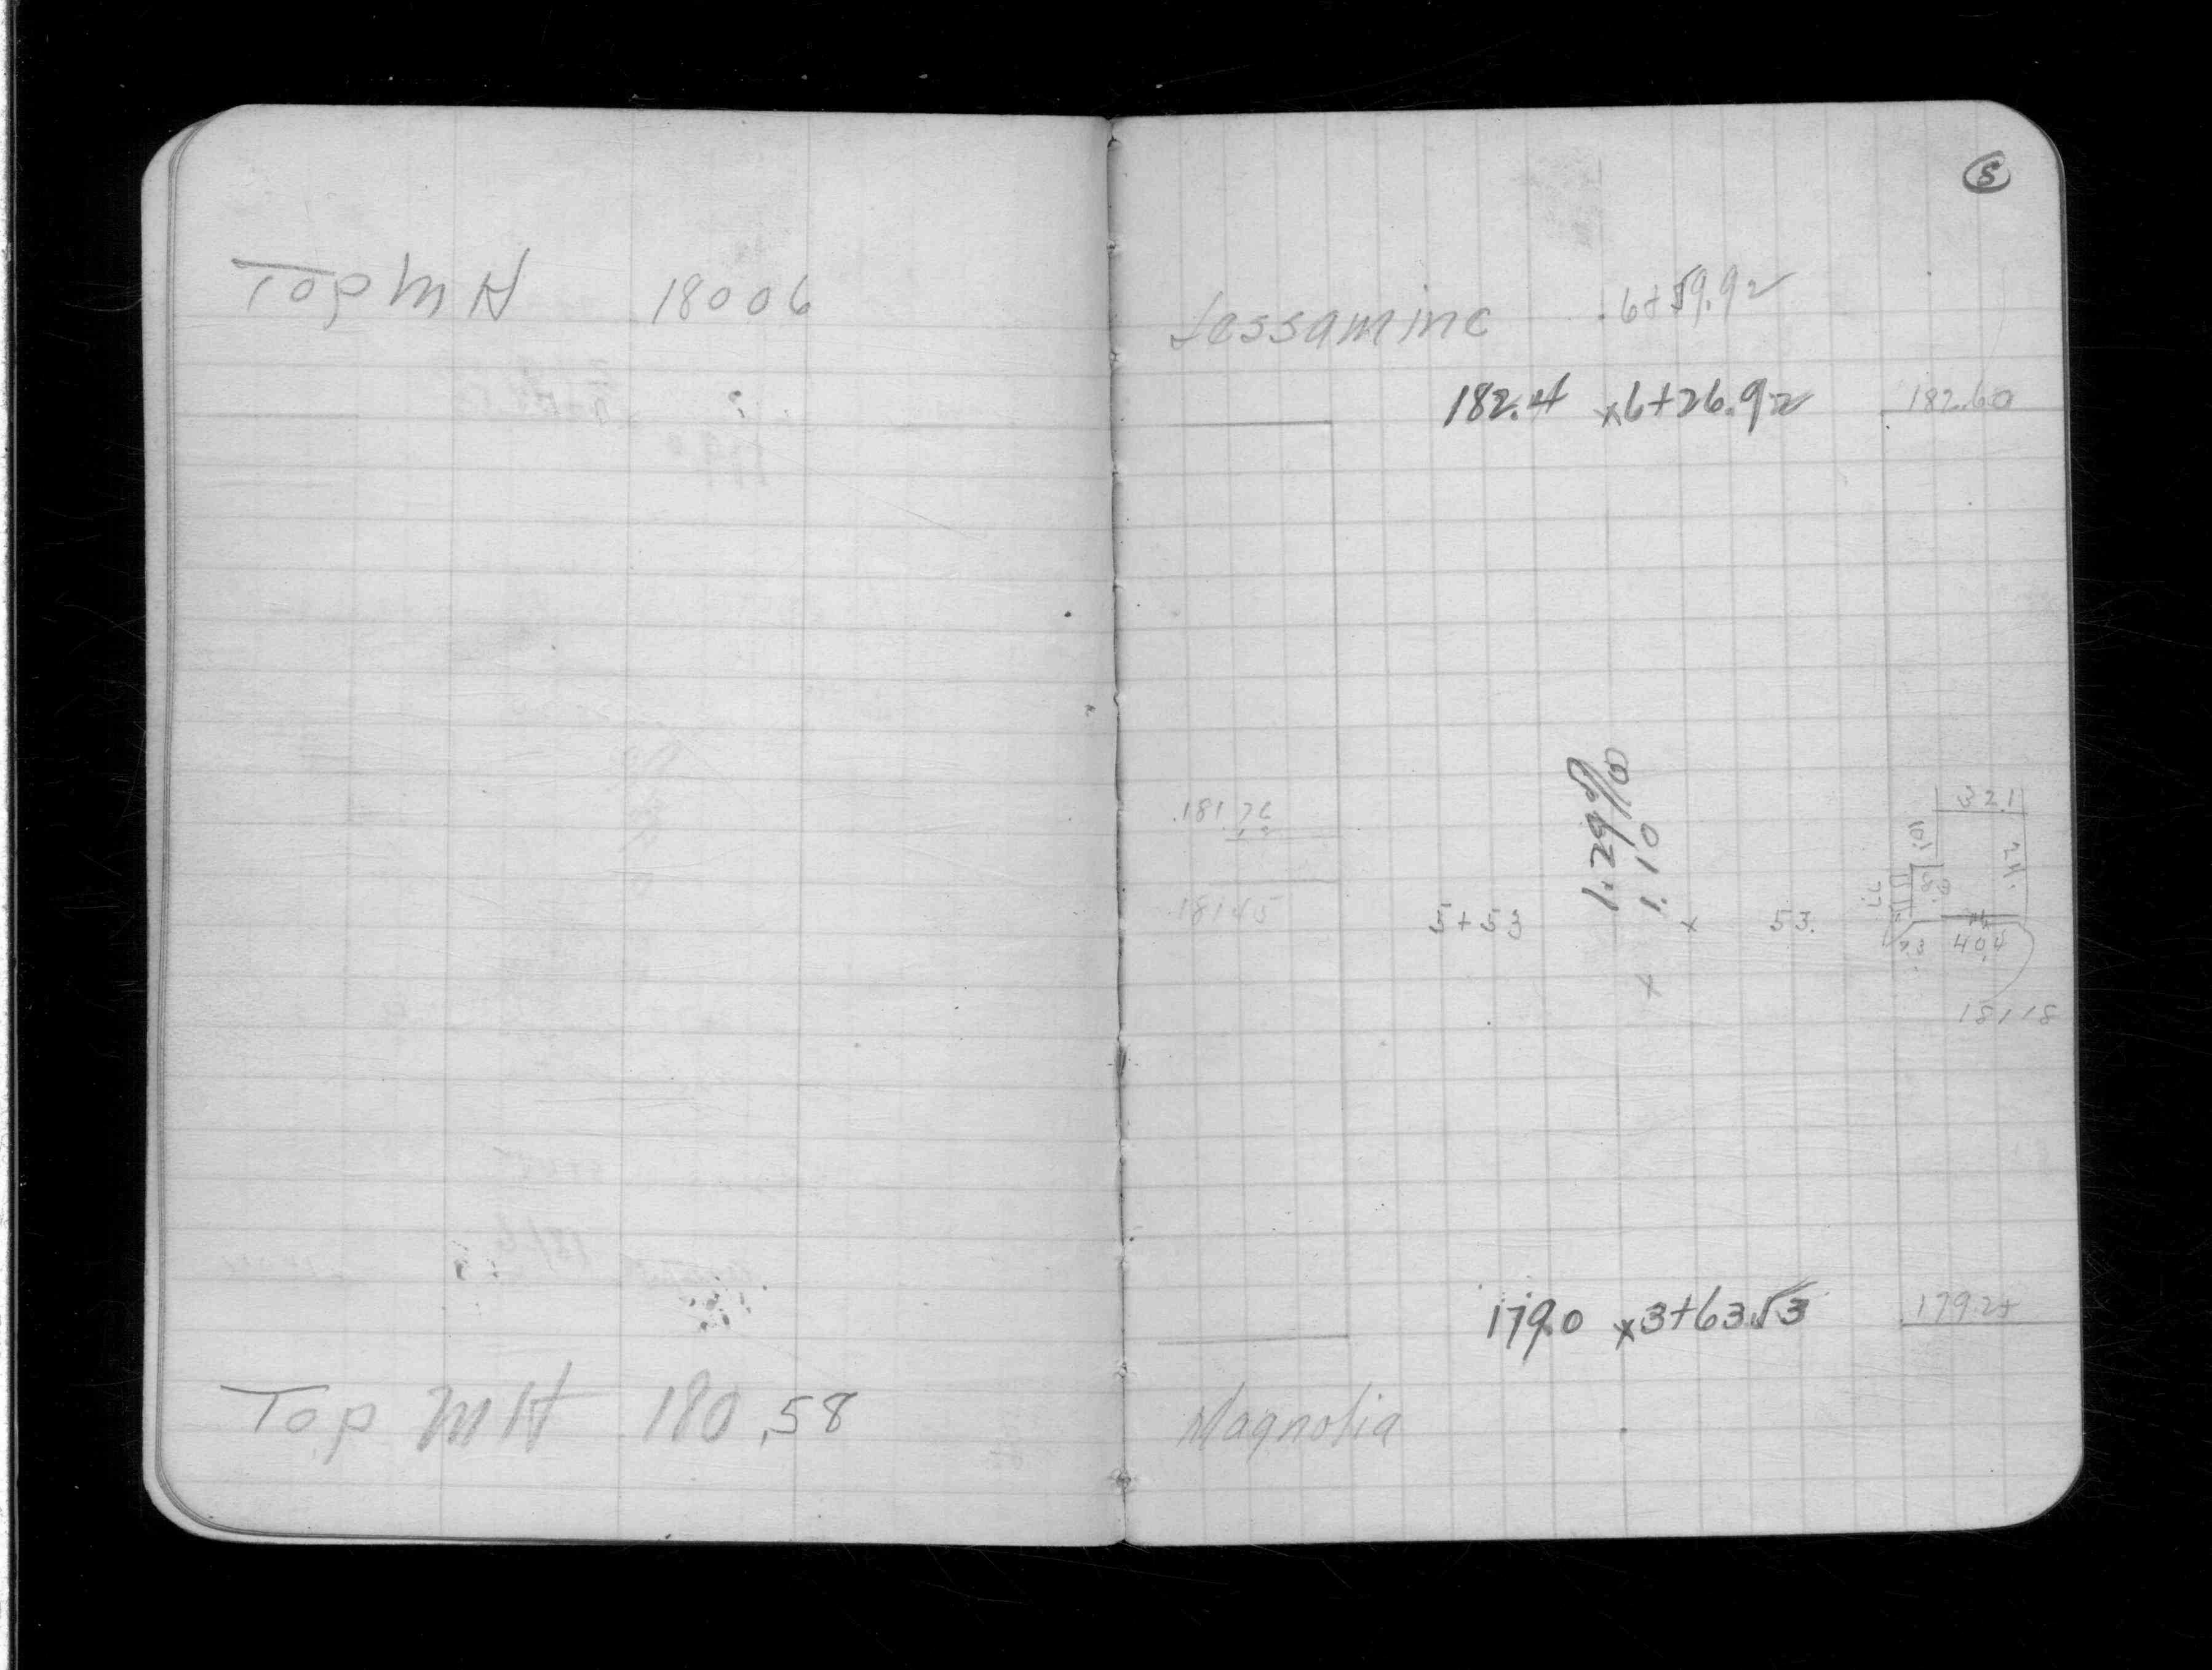 Top MH 18006
Top MH 180.58
5
Jessamine 6+59.92
182.4 x6+26.92 182.60
1.29%
1.10
181.76
18145
5+53 x 53.
32.1
10.1
24.
40.4
18118
179.0 x3+63.53 179.25
Magnolia